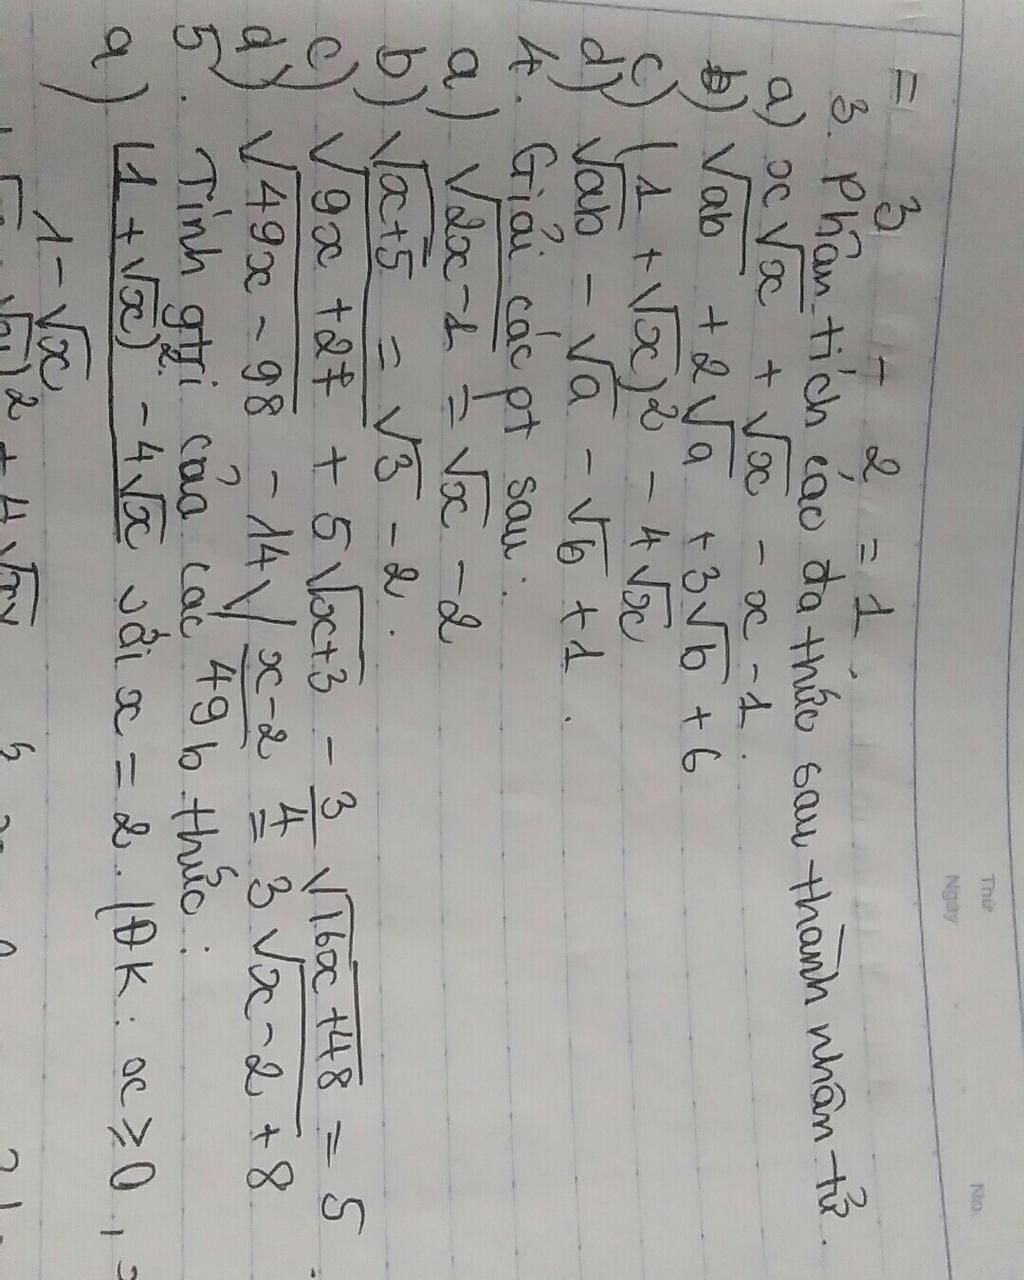 Thứ
Ngày
No.
= 3 - 2 = 1.
3. Phân tích các đa thức sau thành nhân tử.
a) x√x + √x - x - 1.
b) √ab + 2√a + 3√b + 6
c) (1 + √x)² - 4√x
d) √ab - √a - √b + 1.
4. Giải các pt sau:
a) √2x-1 = √x - 2
b) √x+5 = √3 - 2.
c) √9x+27 + 5√x+3 - 3/4 √16x+48 = 5.
d) √49x-98 - 14√x-2/49 = 3√x-2 + 8
5. Tính gtrị của các b thức:
a) (1+√x)² - 4√x / 1-√x với x = 2. (ĐK: x ≥ 0,